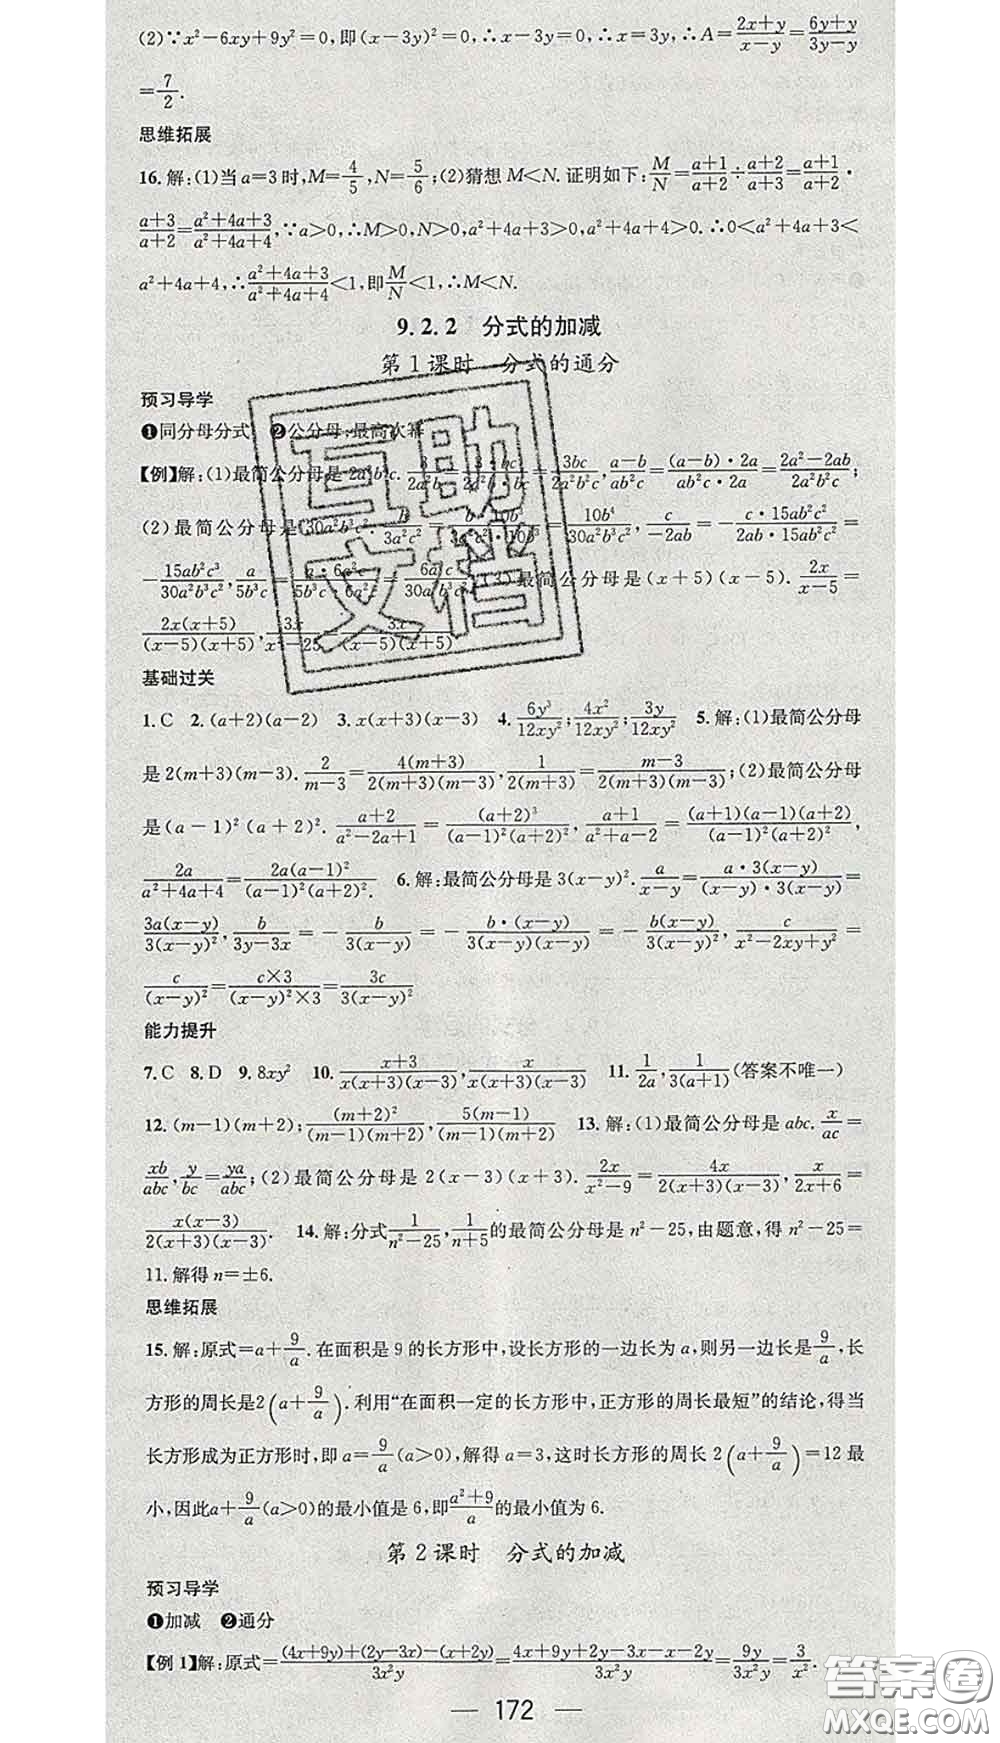 (2)∵x²-6xy+9y²=0,即(x-3y)²=0,∴x-3y=0,∴x=3y,∴A=(2x+y)/(x-y)=(6y+y)/(3y-y)
=7/2.
思维拓展
16.解:(1)当a=3时,M=4/5,N=5/6;(2)猜想M<N.证明如下:M/N=(a+1)/(a+2)÷(a+2)/(a+3)=(a+1)/(a+2)·
(a+3)/(a+2)=(a²+4a+3)/(a²+4a+4),∵a>0,∴M>0,N>0,a²+4a+3>0,a²+4a+4>0.∴0<a²+4a+3<
a²+4a+4,∴(a²+4a+3)/(a²+4a+4)<1,即M/N<1,∴M<N.
9.2.2 分式的加减
第1课时 分式的通分
预习导学
❶同分母分式 ❷公分母:最高次幂
【例】解:(1)最简公分母是2a²b²c.3/(2a²b)=(3·bc)/(2a²b·bc)=3bc/(2a²b²c),(a-b)/(ab²c)=((a-b)·2a)/(ab²c·2a)=(2a²-2ab)/(2a²b²c);
(2)最简公分母是30a²b³c².b/(3a²c²)=(b·10b³)/(3a²c²·10b³)=10b⁴/(30a²b³c²),c/(-2ab)=-(c·15ab²c²)/(2ab·15ab²c²)=
-15ab²c³/(30a²b³c²),a/(5b³c)=(a·6a²c)/(5b³c·6a²c)=6a³c/(30a²b³c²);(3)最简公分母是(x+5)(x-5).2x/(x-5)=
2x(x+5)/((x-5)(x+5)),3x/(x²-25)=3x/((x-5)(x+5))
基础过关
1.C 2.(a+2)(a-2) 3.x(x+3)(x-3) 4.6y³/(12xy²);4x²/(12xy²);3y/(12xy²) 5.解:(1)最简公分母
是2(m+3)(m-3).2/(m-3)=4(m+3)/(2(m+3)(m-3)),1/(2(m+3))=(m-3)/(2(m+3)(m-3));(2)最简公分母
是(a-1)²(a+2)².(a+2)/(a²-2a+1)=(a+2)³/((a-1)²(a+2)²),(a+1)/(a²+a-2)=(a+1)(a-1)(a+2)/((a-1)²(a+2)²),
2a/(a²+4a+4)=2a(a-1)²/((a-1)²(a+2)²). 6.解:最简公分母是3(x-y)².a/(x-y)=(a·3(x-y))/((x-y)·3(x-y))=
3a(x-y)/(3(x-y)²),b/(3y-3x)=-b/(3(x-y))=-(b·(x-y))/(3(x-y)(x-y))=-b(x-y)/(3(x-y)²),c/(x²-2xy+y²)=
c/(x-y)²=(c×3)/((x-y)²×3)=3c/(3(x-y)²)
能力提升
7.C 8.D 9.8xy² 10.(x+3)/(x(x+3)(x-3)),x/(x(x+3)(x-3)) 11.1/(2a),1/(3(a+1))(答案不唯一)
12.(m-1)(m+2);(m+2)²/((m-1)(m+2)),5(m-1)/((m-1)(m+2)) 13.解:(1)最简公分母是abc.x/(ac)=
xb/(abc),y/(bc)=ya/(abc);(2)最简公分母是2(x-3)(x+3).2x/(x²-9)=4x/(2(x+3)(x-3)),x/(2x+6)=
x(x-3)/(2(x+3)(x-3)). 14.解:分式1/(n²-25),1/(n+5)的最简公分母是n²-25,由题意,得n²-25=
11.解得n=±6.
思维拓展
15.解:原式=a+9/a.在面积是9的长方形中,设长方形的一边长为a,则另一边长是9/a,长
方形的周长是2(a+9/a).利用“在面积一定的长方形中,正方形的周长最短”的结论,得当
长方形成为正方形时,即a=9/a(a>0),解得a=3,这时长方形的周长2(a+9/a)=12最
小,因此a+9/a(a>0)的最小值是6,即(a²+9)/a的最小值为6.
第2课时 分式的加减
预习导学
❶加减 ❷通分
【例1】解:原式=((4x+9y)+(2y-3x)-(x+2y))/(3x²y)=(4x+9y+2y-3x-x-2y)/(3x²y)=9y/(3x²y)=3/x².
— 172 —
互助
文档
答案圈
MXQE.COM